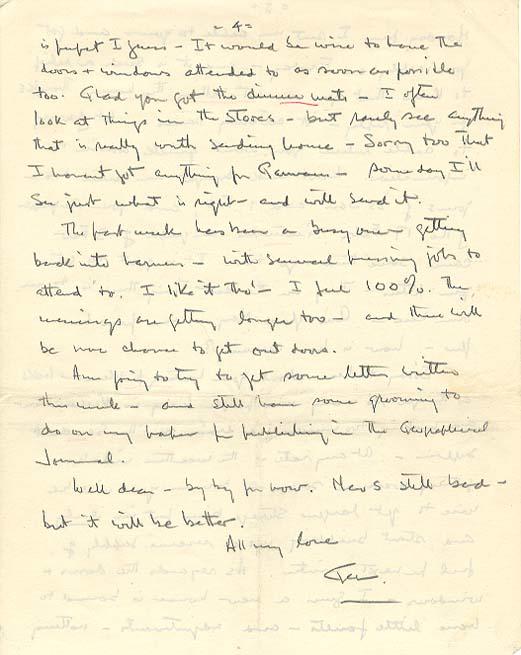 - 4 -
is perfect I guess - It would be wise to have the
doors + windows attended to as soon as possible
too. Glad you got the dinner mats - I often
look at things in the stores - but rarely see anything
that is really worth sending home - Sorry too that
I havent got anything for - someday I'll
see just what is right - and will send it.
The past week has been a busy one getting
back into harness - with several pressing jobs to
attend to. I like it tho' - I feel 100%. The
evenings are getting longer too - and there will
be more chance to get out doors.
Am going to try to get some letters written
this week - and still have some grooming to
do on my paper for publishing in the Geographical
Journal.
Well dear - by by for now. News still bad -
but it will be better.
All my love